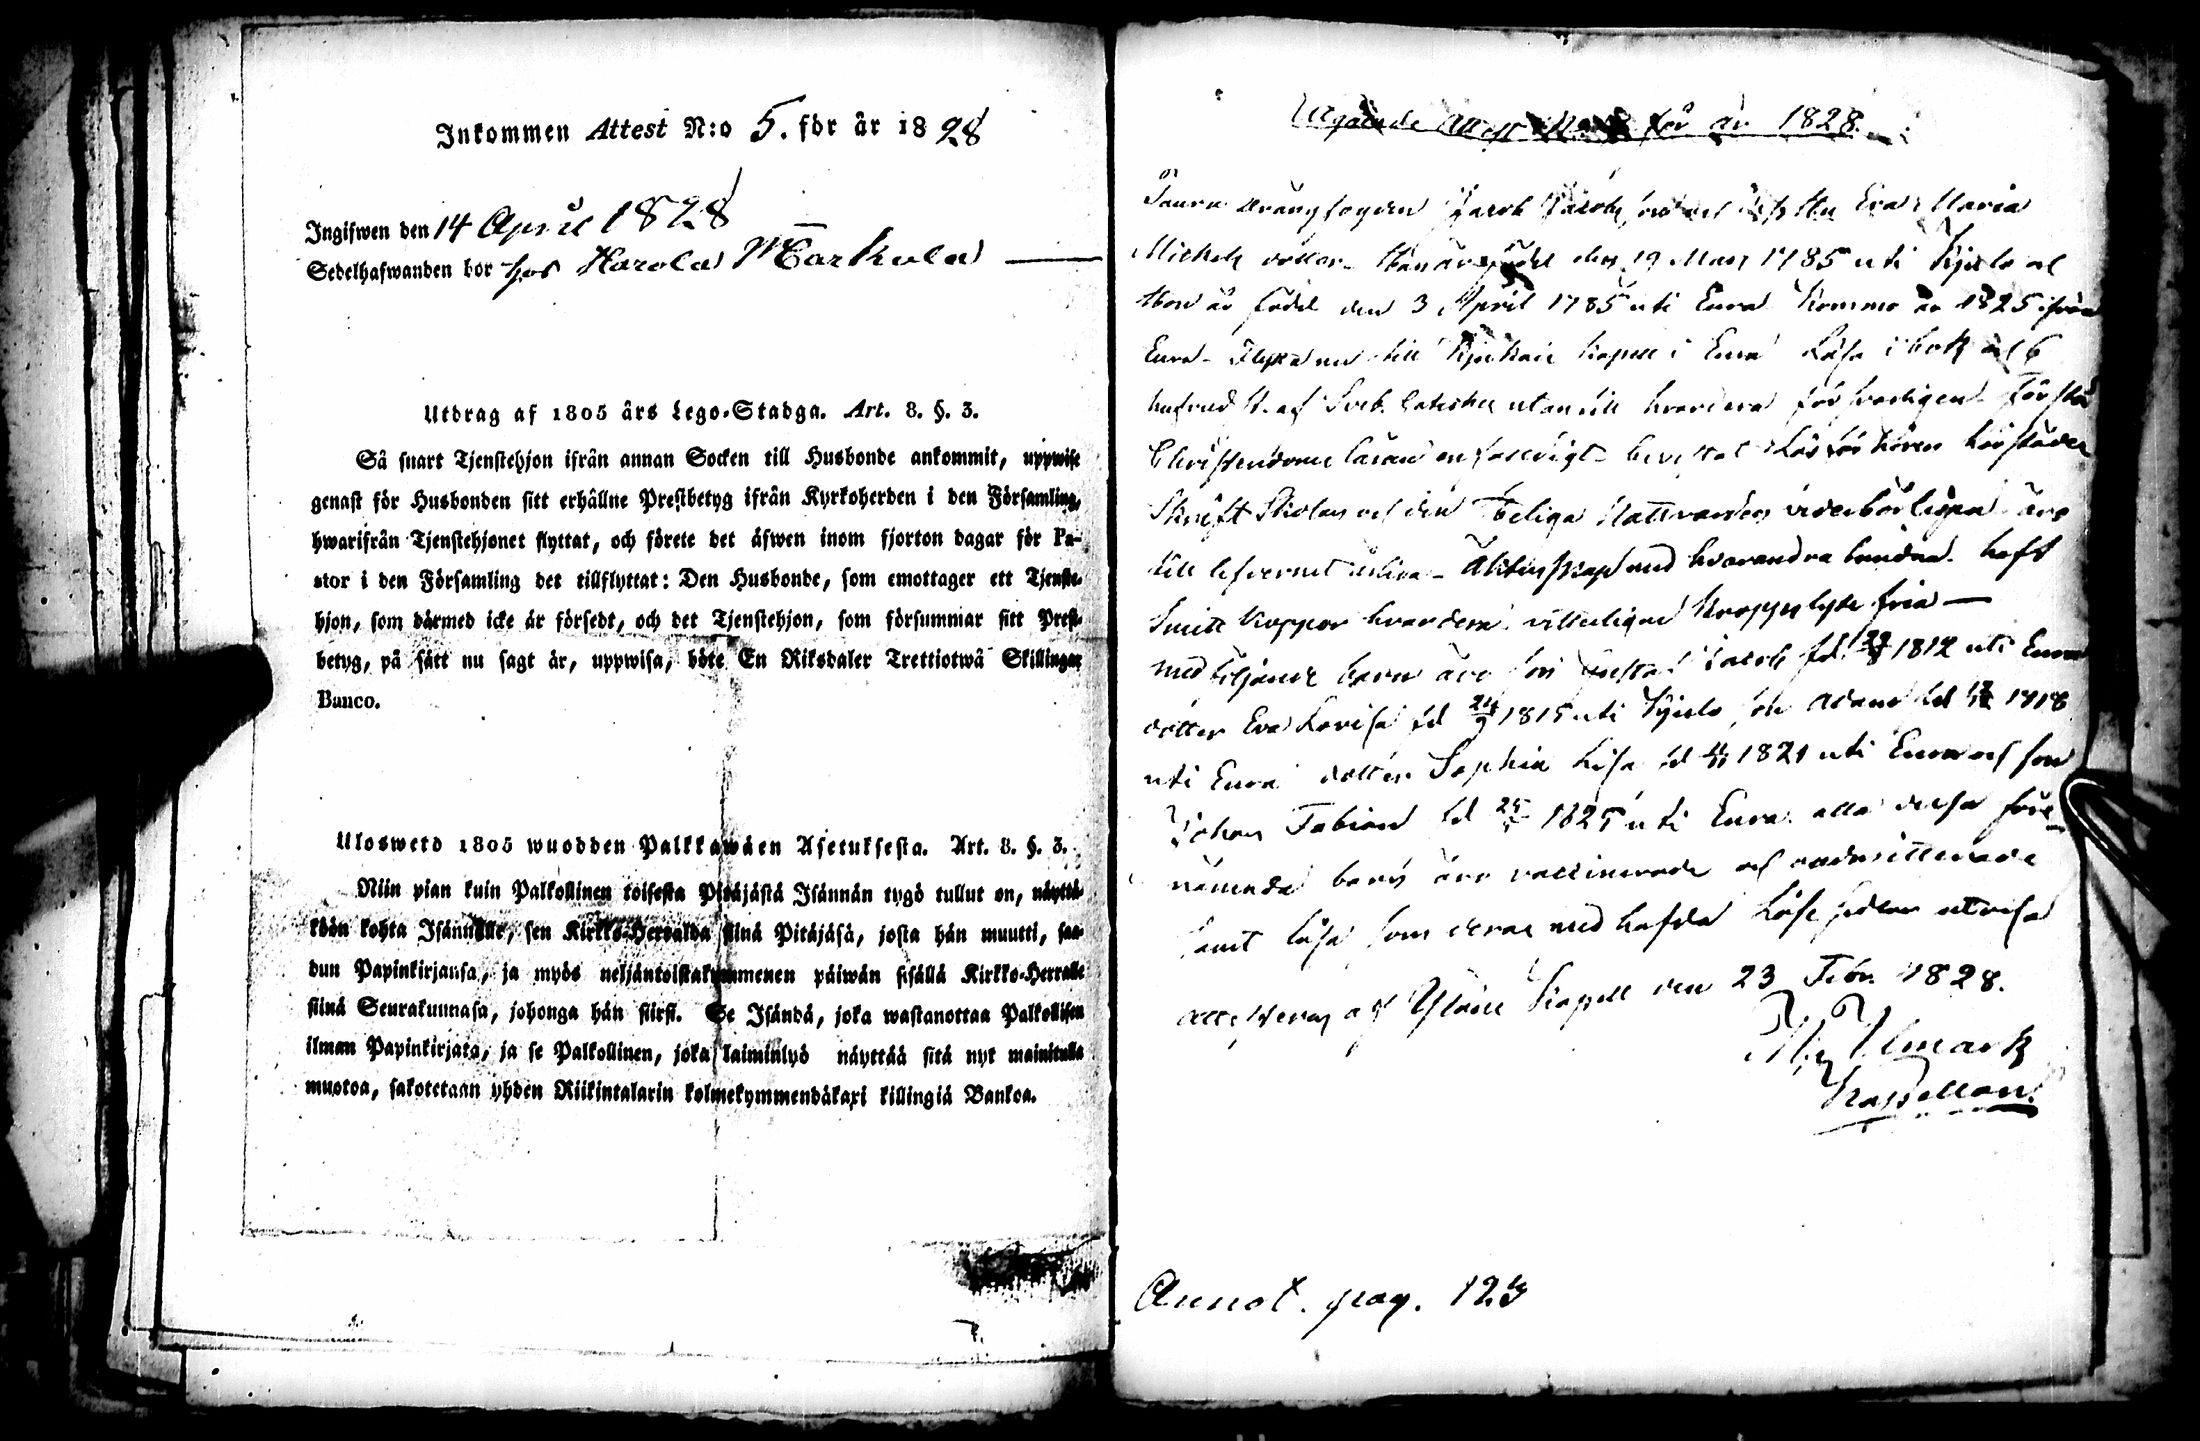 Inkommen Attest N:o 5. för år 1828
Ingifwen den 14 April 1828
Sedelhafwanden bor hos Harola Markula
Utdrag af 1805 års Lego-Stadga. Art. 8. §. 3.
Så snart Tjenstehjon ifrån annan Socken till Husbonde ankommit, uppwise
genast för Husbonden sitt erhållne Prestbetyg ifrån Kyrkoherden i den Församling,
hwarifrån Tjenstehjonet flyttat, och förete det äfwen inom fjorton dagar för Pa-
stor i den Församling det tillflyttat: Den Husbonde, som emottager ett Tjenste-
hjon, som därmed icke är försedt, och det Tjenstehjon, som försummar sitt Prest-
betyg, på sätt nu sagt är, uppwisa, böte En Riksdaler Trettiotwå Skillingar
Banco.
Uloswetd 1805 wuodden Palkkawäen Asetuksesta. Art. 8. §. 3.
Niin pian kuin Palkollinen toisesta Pitäjästä Isännän tygö tullut on, näyttä-
köön kohta Isännälle, sen Kirkko-Herralda siinä Pitäjäsä, josta hän muutti, saa-
dun Papinkirjansa, ja myös neljäntoistakymmenen päiwän sisällä Kirkko-Herralle
siinä Seurakunnasa, johonga hän siirsi. Se Isändä, joka wastanottaa Palkollisen
ilman Papinkirjata, ja se Palkollinen, joka laiminlyö näyttää sitä nyt mainitulla
muotoa, sakotetaan yhden Riikintalarin kolmekymmendäkaxi killingiä Bankoa.
Utgående Attest för år 1828
Jacob Eva Maria
Michels dotter Han är född den 19 Maj 1785 uti Kjulo och
Hon är född den 3 April 1785 uti Eura Kommo år 1825 ifrån
Eura - Flytta nu till Kjukais Kapell i Eura Läsa i bok och
hufvud st. af Sveb. Cateches utan till hvardera försvarligen. Förstå
Christendoms läran enfaldigt - bevistat Läsförhören
Skrift Skolan och den Heliga Nattvarden vederbörligen äro
till lefvernet - Äktenskap med hvarandra bundne. haft
Smitt koppor hvardera. vitterligen kroppslyte fria —
med följande barn äro Jacob fd 1812 uti Eura
dotter Eva Lovisa fd 24/9 1815 uti Kjulo son Adam fd 1818
uti Eura dotter Sophia Lisa fd 1821 uti Eura och son
Johan Fabian fd 1825 uti Eura. alla dessa före-
nämnde barn äro vaccinerade och
samt läsa som deras med hafda Läse sedlar utvisa
attesteras af Yläne Kapell den 23 Febr. 1828.
Ulmark
Kapellan.
Annot. pag. 123